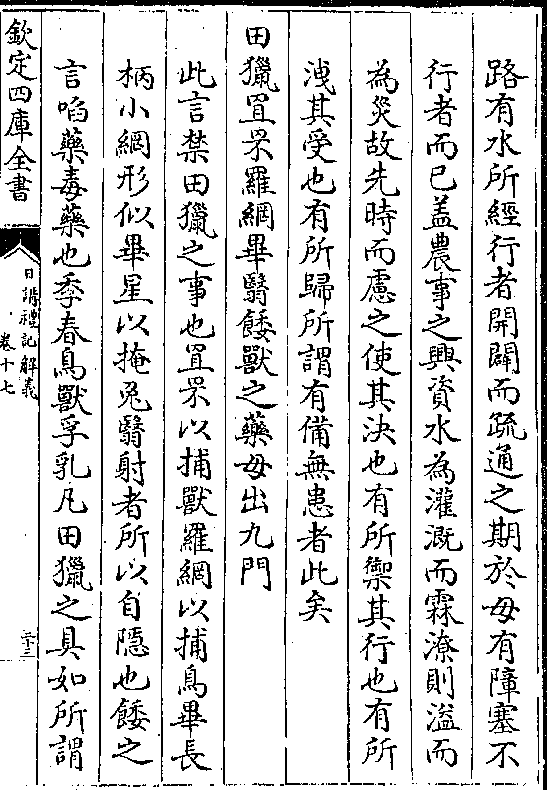 路有水所經行者開闢而疏通之期於毋有障塞不
行者而已蓋農事之興資水為灌溉而霖潦則溢而
為災故先時而慮之使其決也有所禦其行也有所
洩其受也有所歸所謂有備無患者此矣
田獵罝罘羅網畢翳餧獸之藥毋出九門
此言禁田獵之事也罝罘以捕獸羅網以捕鳥畢長
柄小網形似畢星以掩兎翳射者所以自隱也餧之
言啗藥毒藥也季春鳥獸孚乳凡田獵之具如所謂
欽定四庫全書
日講禮記解義
卷十七
二十三